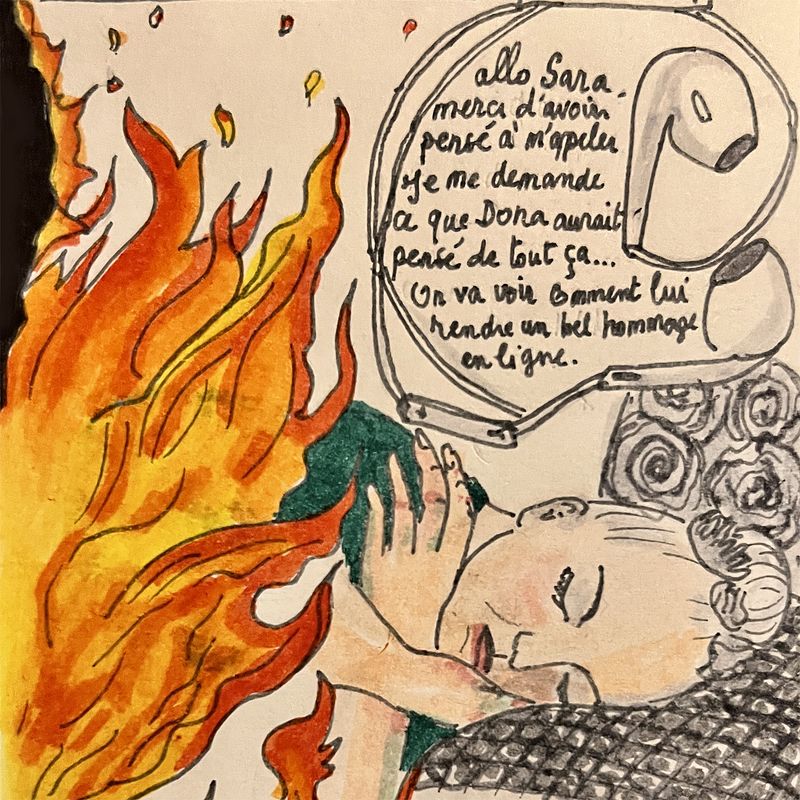 allo Sara,
merci d'avoir
pensé à m'apeler
Je me demande
ce que Dora aurait
pensé de tout ça...
On va voir comment lui
rendre un bel hommage
en ligne.